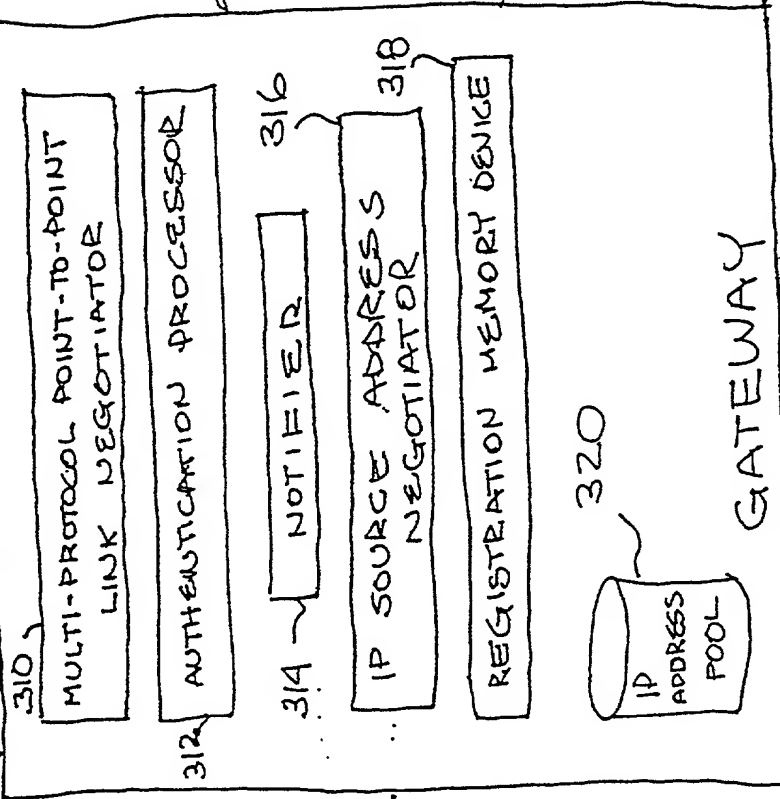 310
MULTI-PROTOCOL POINT-TO-POINT
LINK NEGOTIATOR
312
AUTHENTICATION PROCESSOR
314
NOTIFIER
316
IP SOURCE ADDRESS
NEGOTIATOR
318
REGISTRATION MEMORY DEVICE
320
IP
ADDRESS
POOL
GATEWAY